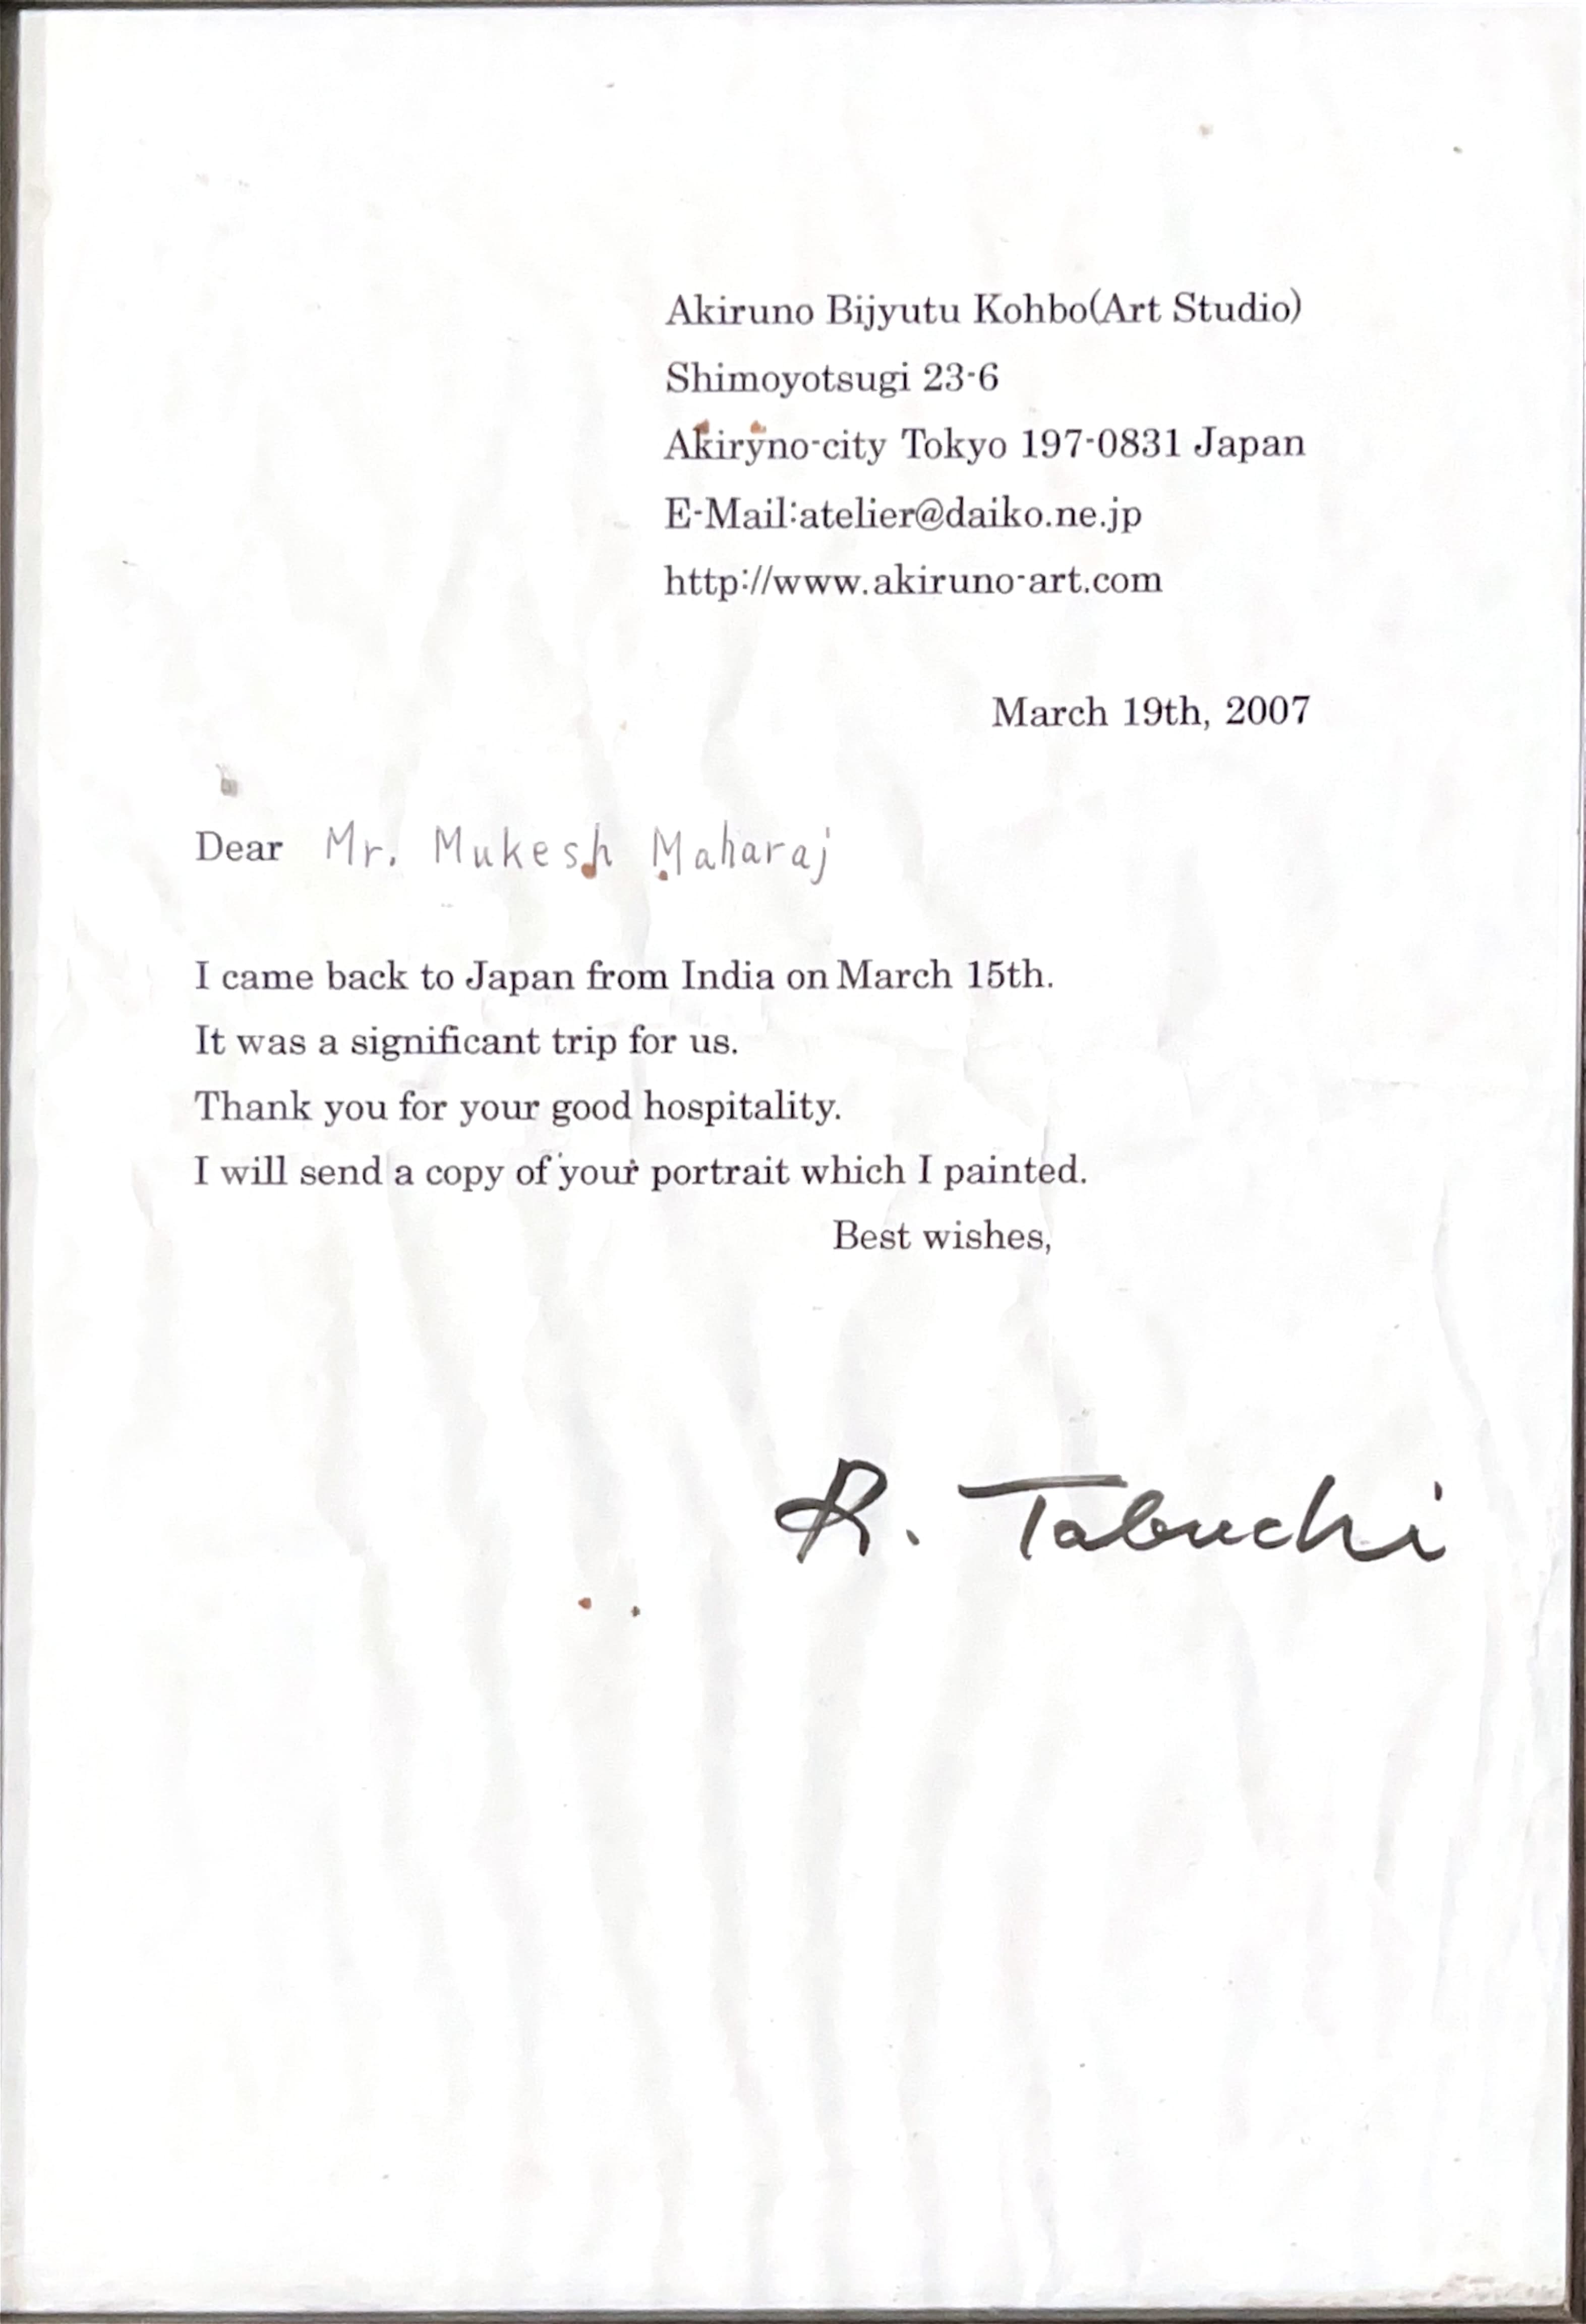 Akiruno Bijyutu Kohbo(Art Studio)
Shimoyotsugi 23-6
Akiryno-city Tokyo 197-0831 Japan
E-Mail:atelier@daiko.ne.jp
http://www.akiruno-art.com
March 19th, 2007
Dear Mr. Mukesh Maharaj
I came back to Japan from India on March 15th.
It was a significant trip for us.
Thank you for your good hospitality.
I will send a copy of your portrait which I painted.
Best wishes,
R. Tabuchi